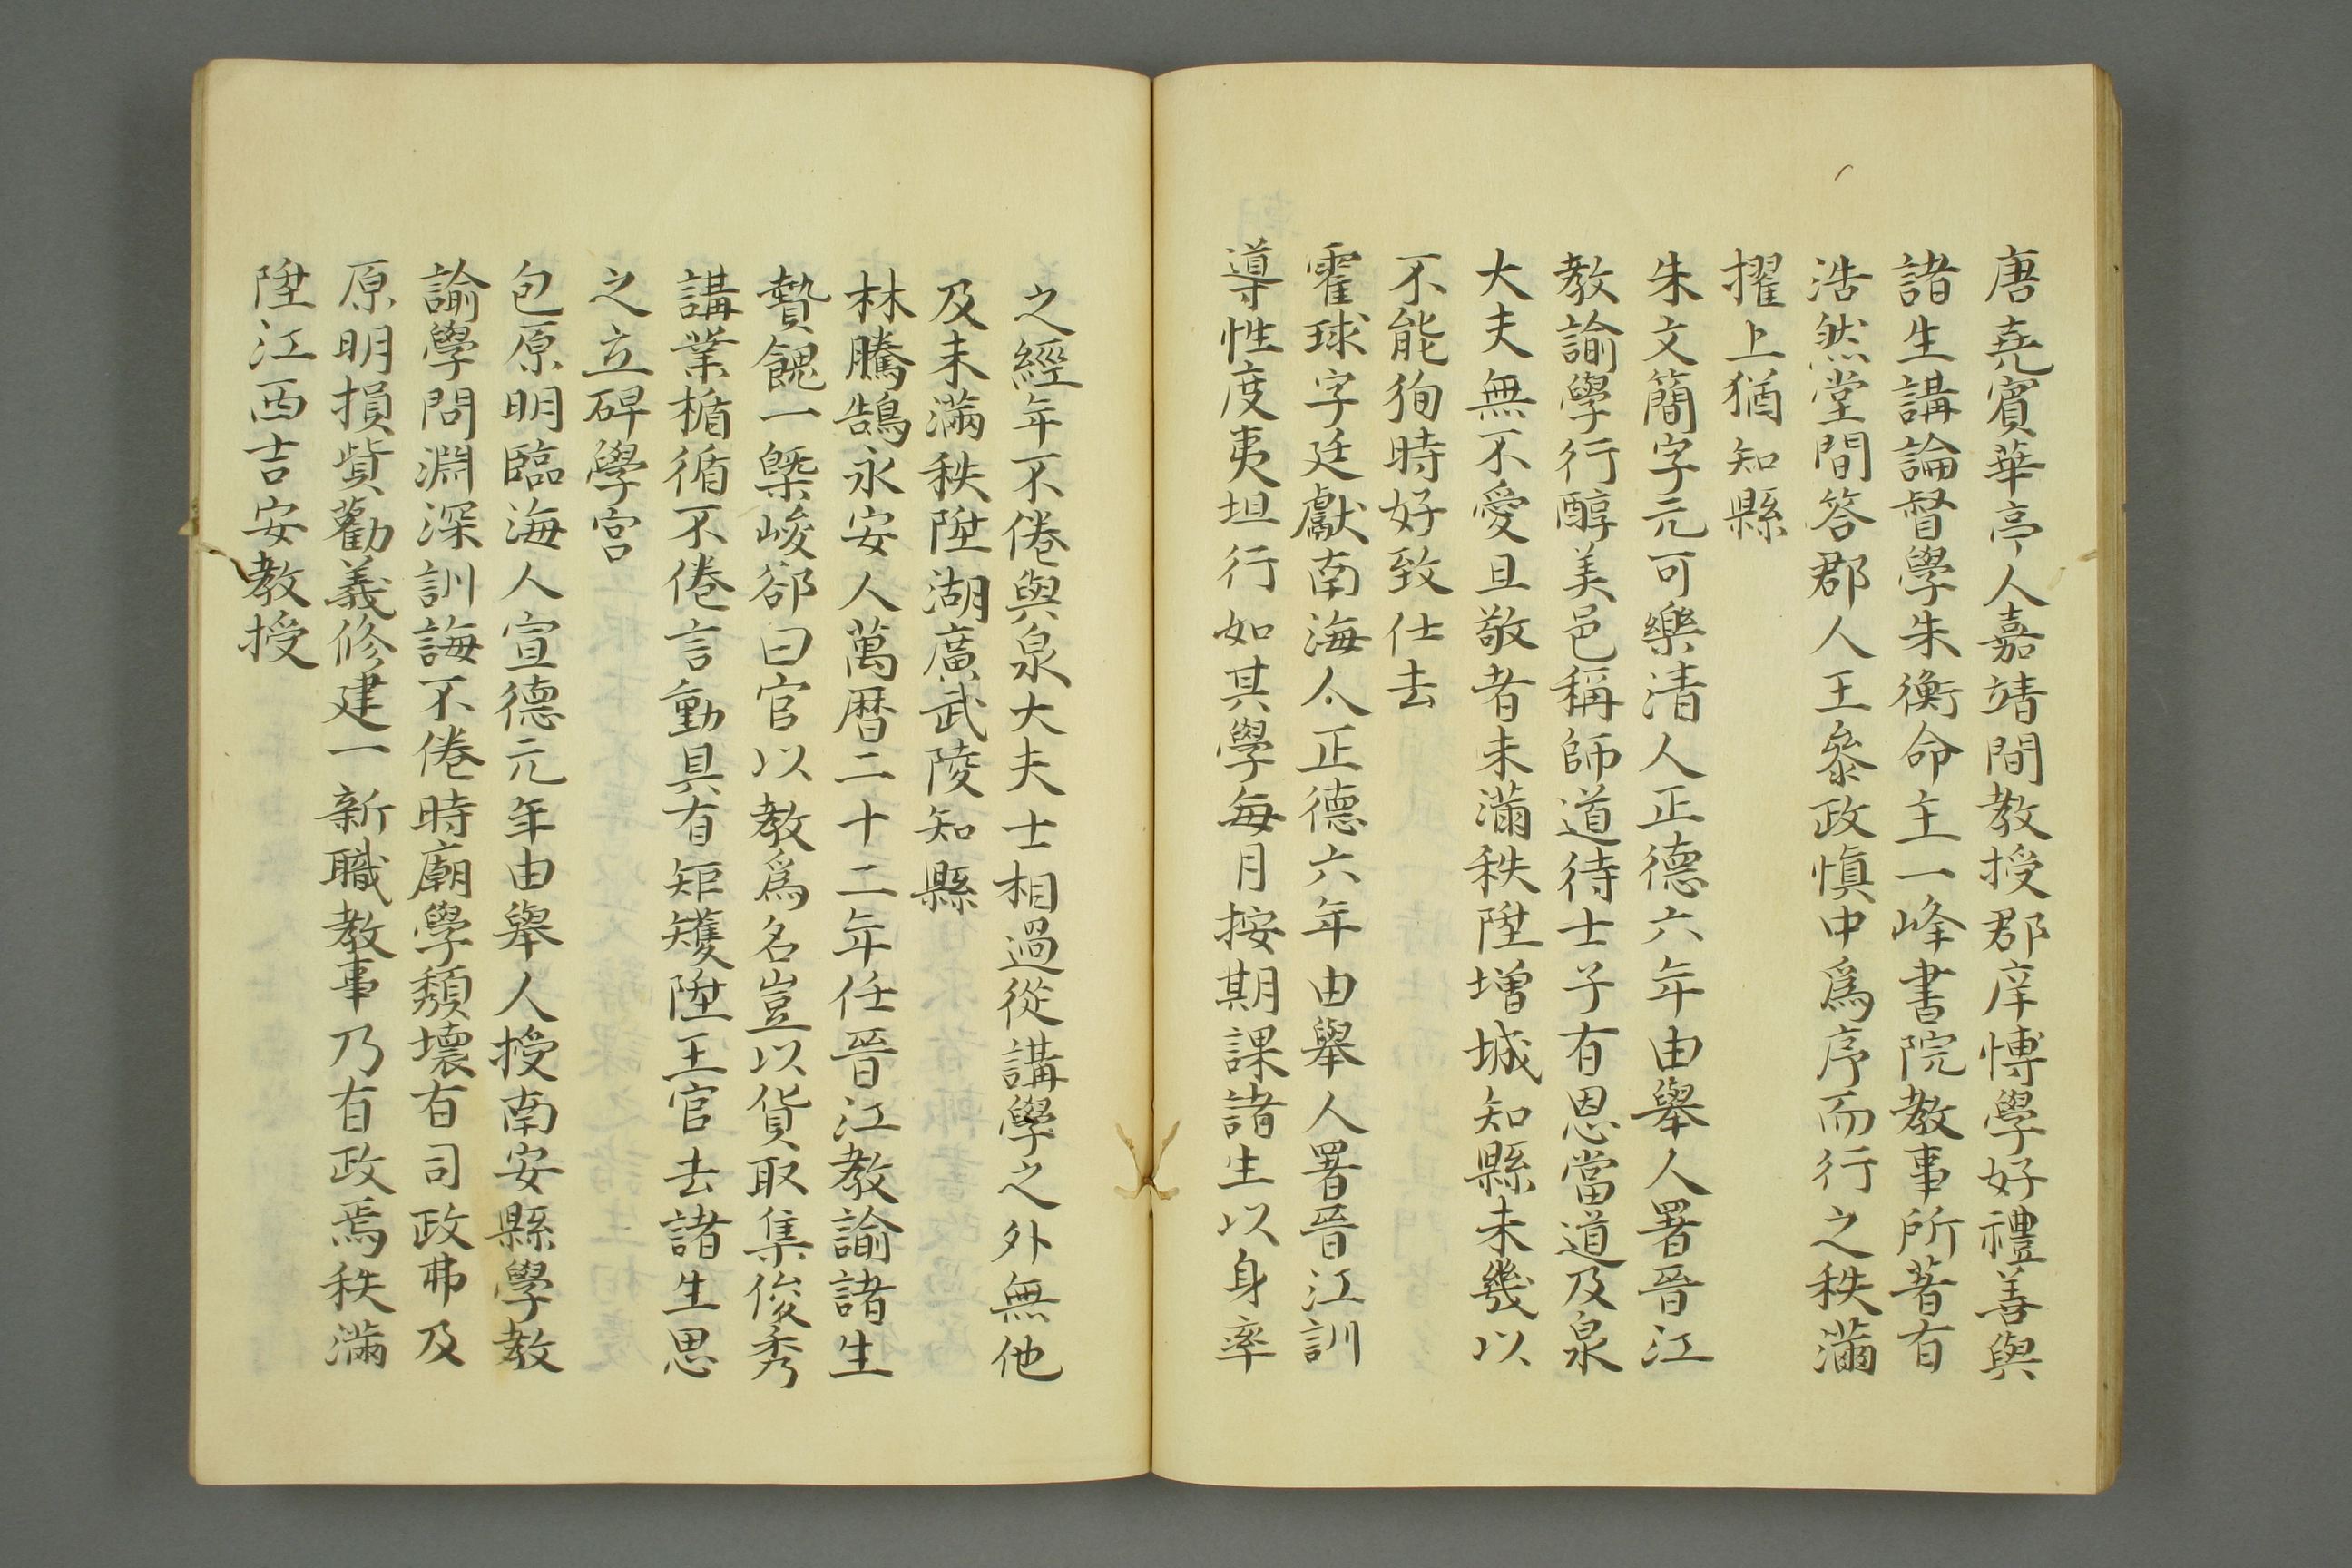 唐堯賓華亭人嘉靖間教授郡庠博學好禮善與
諸生講論督學朱衡命主一峰書院教事所著有
浩然堂間答郡人王參政慎中爲序而行之秩滿
擢上猶知縣
朱文簡字元可樂清人正德六年由舉人署晉江
教諭學行醇美邑稱師道待士子有恩當道及泉
大夫無不愛且敬者未滿秩陞增城知縣未幾以
不能狥時好致仕去
霍球字廷獻南海人正德六年由舉人署晉江訓
導性度夷坦行如其學每月按期課諸生以身率
之經年不倦與泉大夫士相過從講學之外無他
及未滿秩陞湖廣武陵知縣
林騰鵠永安人萬曆二十二年任晉江教諭諸生
贄餽一槩峻郤曰官以教爲名豈以貨取集俊秀
講業楯循不倦言動具有矩矱陞王官去諸生思
之立碑學宮
包原明臨海人宣德元年由舉人授南安縣學教
諭學問淵深訓誨不倦時廟學頽壞有司政弗及
原明損貲勸義修建一新職教事乃有政焉秩滿
陞江西吉安教授